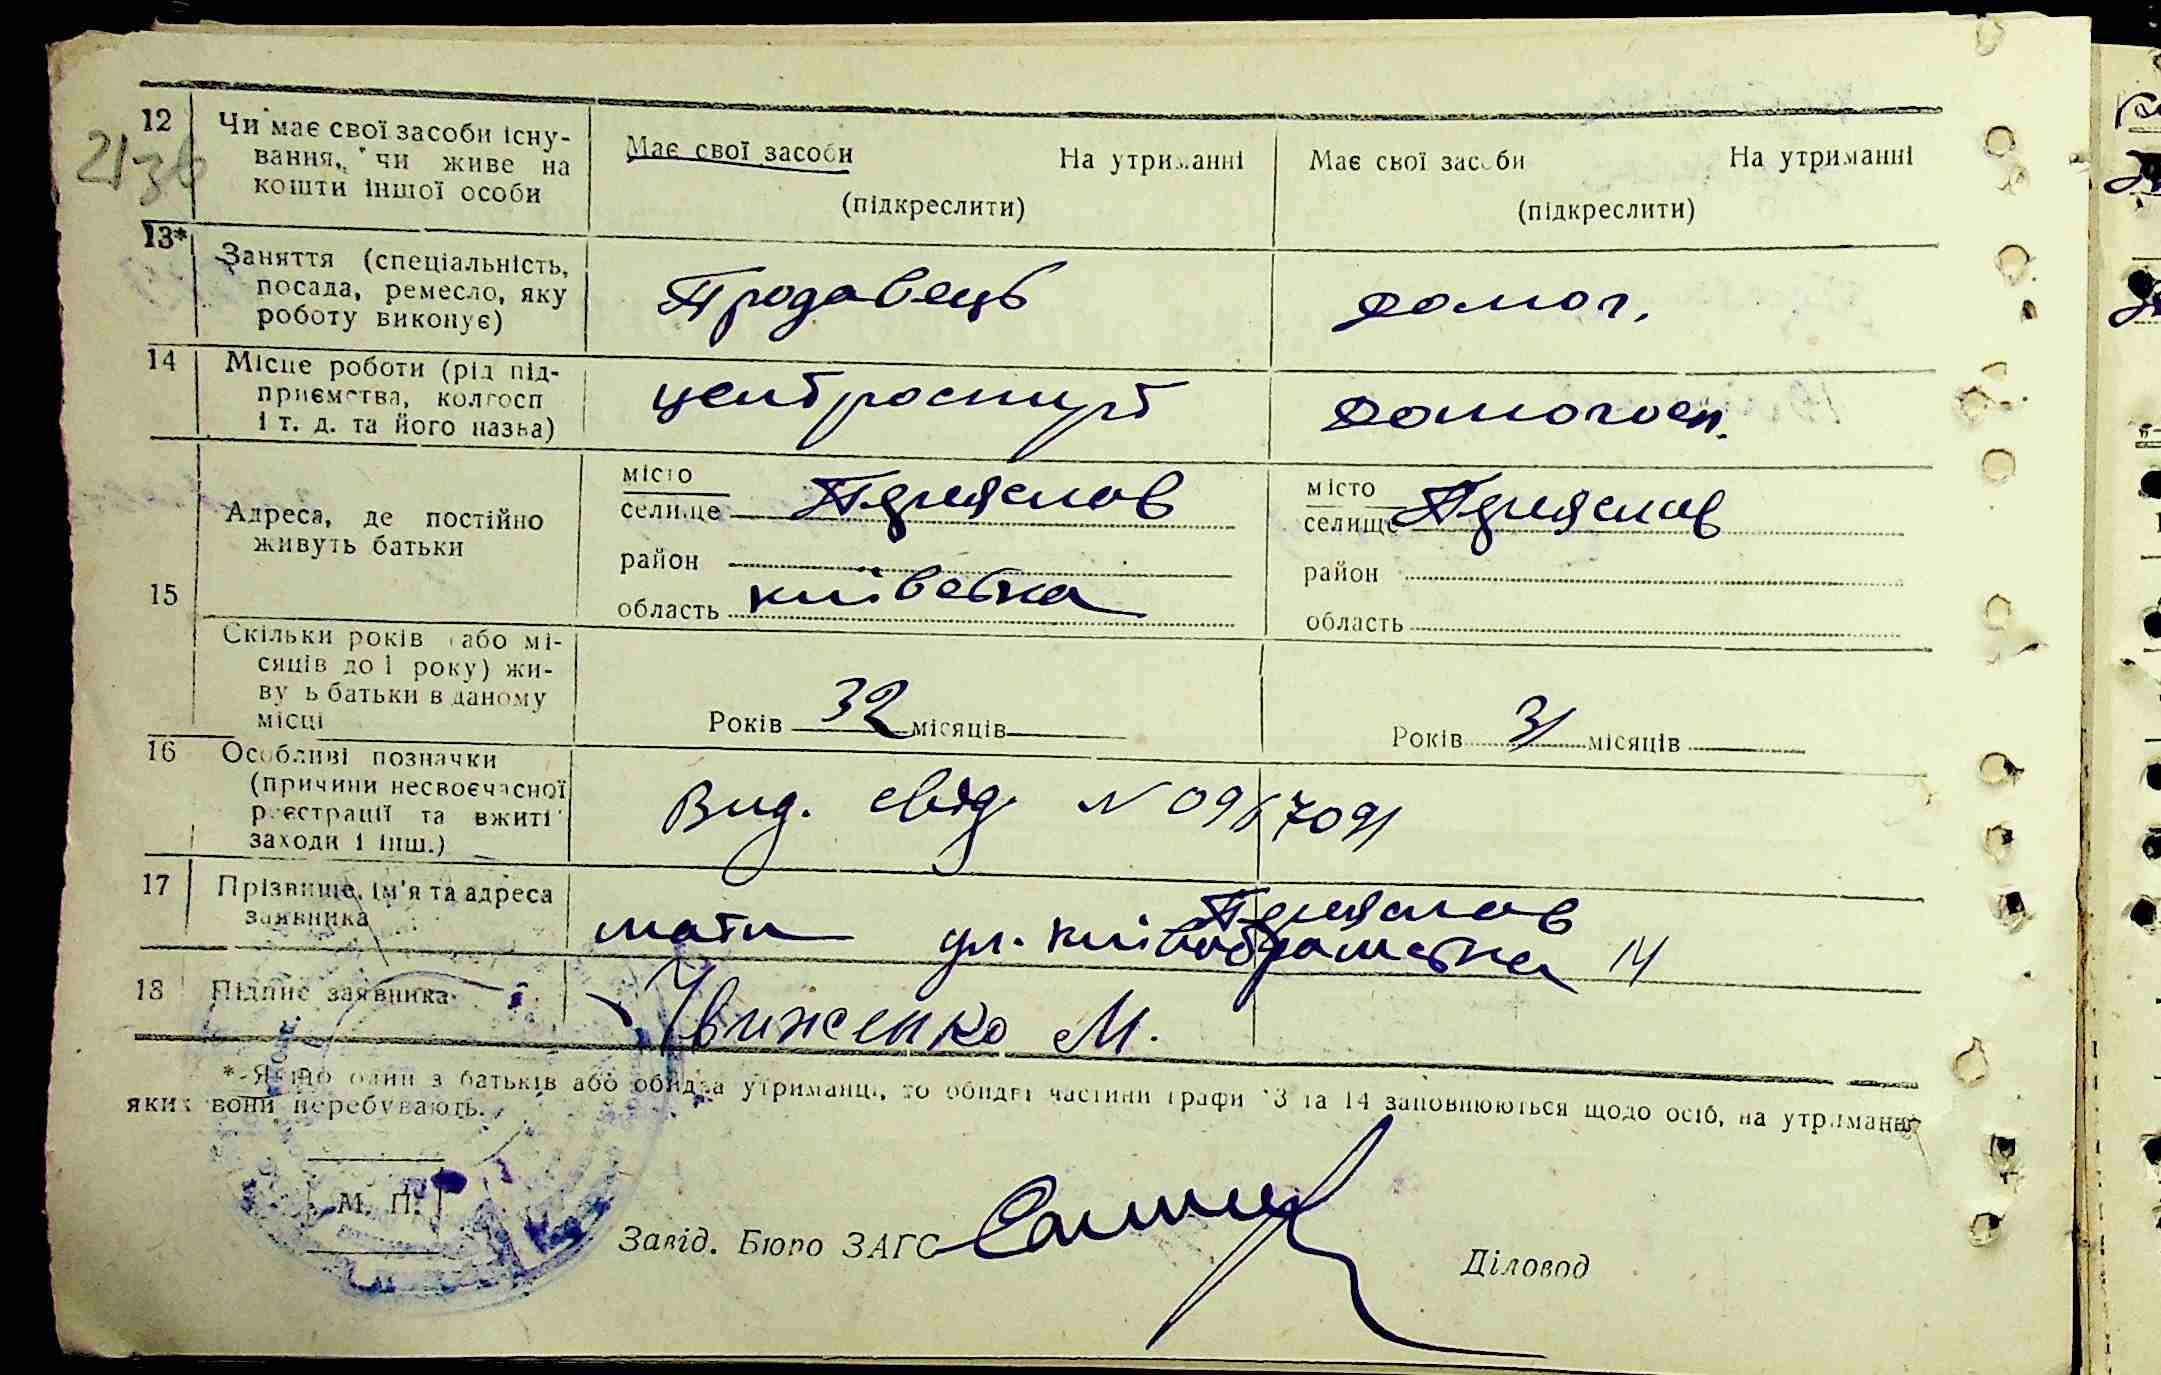 2136
12 Чи має свої засоби існу-
вання, чи живе на
кошти іншої особи
Має свої засоби На утриманні
(підкреслити)
Має свої засоби На утриманні
(підкреслити)
13* Заняття (спеціальність,
посада, ремесло, яку
роботу виконує)
Продавець
домог.
14 Місце роботи (рід під-
приємства, колгосп
і т. д. та його назва)
центроспирт
домогосп.
15 Адреса, де постійно
живуть батьки
місто
селище Переяслов
район
область київська
місто
селище Переяслов
район
область
Скільки років (або мі-
сяців до 1 року) жи-
вуть батьки в даному
місці
Років 32 місяців
Років 31 місяців
16 Особливі позначки
(причини несвоєчасної
реєстрації та вжиті
заходи і інш.)
Вид. свід N 0967091
17 Прізвище, ім'я та адреса
заявника
Переяслов
мати ул. київобрамська 14
18 Підпис заявника
М.
* Якщо один з батьків або обидва утриманці, то обидві частини графи 13 та 14 заповнюються щодо осіб, на утриманні
яких вони перебувають.
М. П.
Завід. Бюро ЗАГС
Діловод